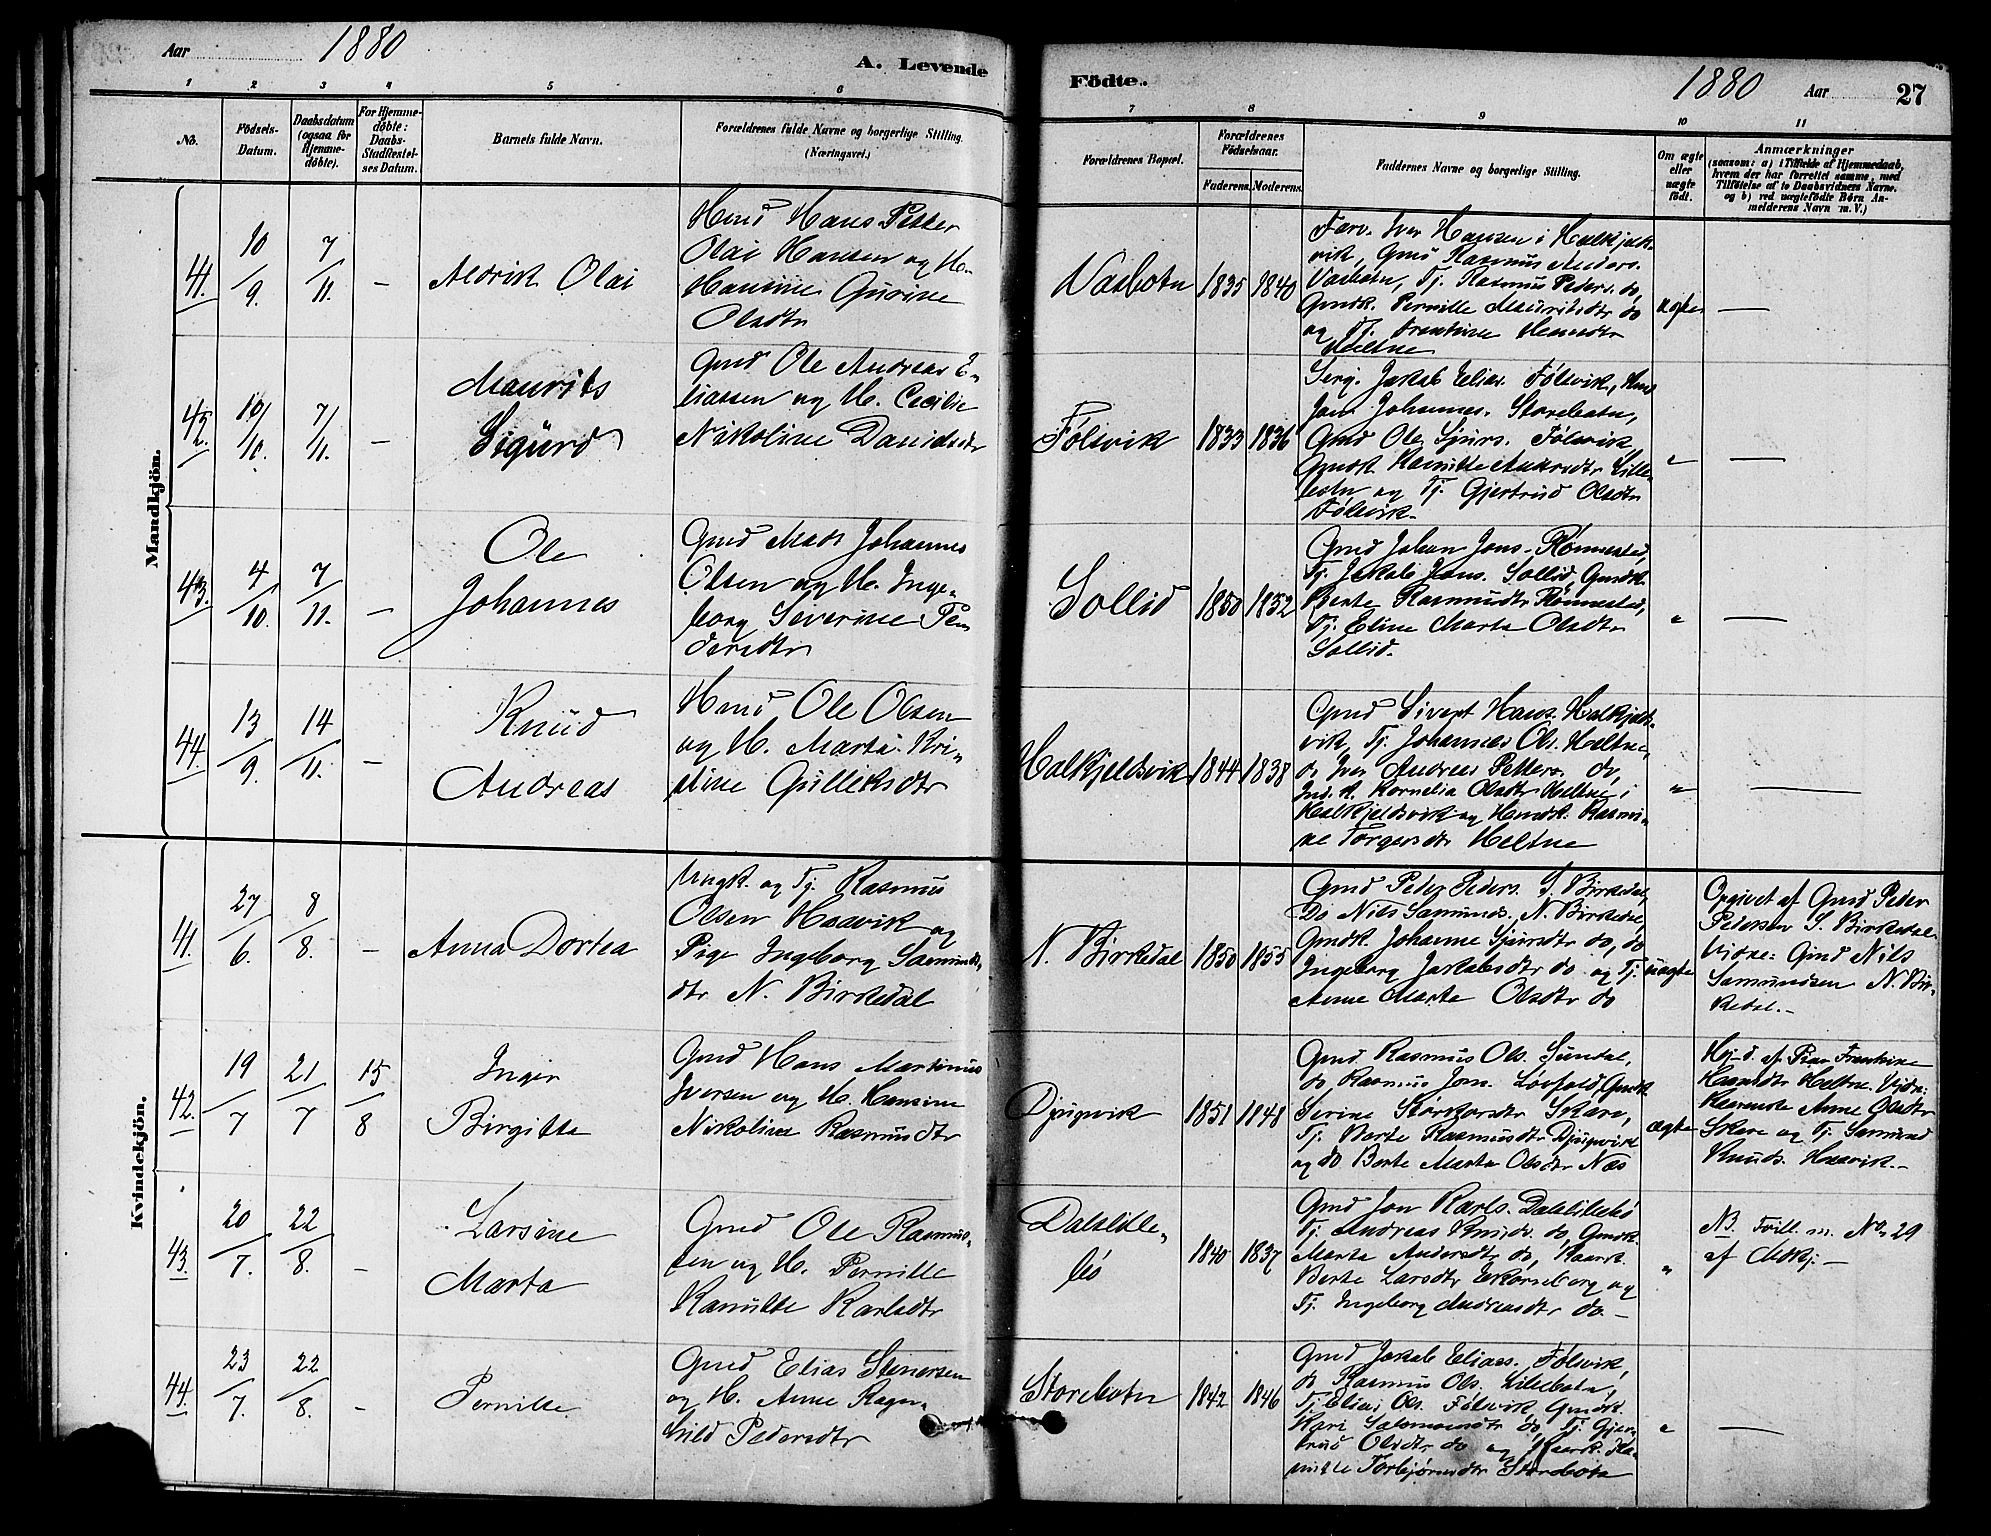 Aar 1880
A. Levende
Födte.
1880 Aar
27
1 2 3 4 5 6
7 8 9 10 11
No.
Födsels-
Datum.
Daabsdatum
(ogsaa for
Hjemme-
døbte).
For Hjemme-
døbte:
Daabs-
Stadfestel-
ses Datum.
Barnets fulde Navn.
Forældrenes fulde Navne og borgerlige Stilling.
(Næringsvei.)
Forældrenes Bopæl.
Forældrenes
Födselsaar.
Faderens. Moderens.
Faddernes Navne og borgerlige Stilling.
Om ægte
eller
uægte
født.
Anmærkninger
(saasom: a) i Tilfælde af Hjemmedaab,
hvem der har forrettet samme, med
Tilføielse af to Daabsvidners Navne.
og b) ved uægtefødte Børn An-
melderens Navn m. V.)
Mandkjön.
41.
10/9.
7/11.
-
Aldrik Olai
Hmd Hans Petter
Olai Hansen og H.
Hansine Gurine
Olsdtr
Vasbotn
1835
1840
Farv. Iver Hansen i Halkjels-
vik, Gmd Rasmus Anders.
Vasbotn, Tj. Rasmus Peders. do,
Gmdk. Pernille Mauritsdtr do
og Tj. Frantine Hansdtr
Heltne
ægte
—
42.
10/10.
7/11.
-
Maurits
Sigurd
Gmd Ole Andreas E-
liassen og H. Cecilie
Nikoline Davidsdtr
Følsvik
1833
1836
Serg. Jakob Elias. Følsvik,
Jon Johannes. Storebotn,
Gmd Ole Sjurs. Følsvik,
Gmdk. Ranulte Andersdtr Lille-
botn og Tj. Gjertrud Olsdtr
Følsvik.
"
—
43.
4/10.
7/11.
-
Ole
Johannes
Gmd Mads Johannes
Olsen og H. Inge-
borg Severine Pe-
dersdtr
Sollid
1850
1852
Gmd Johan Jons. Rønnestad
Tj. Jakob Jons. Sollid, Gmdk.
Berte Rasmusdtr Rønnestad,
Tj. Eline Marta Olsdtr
Sollid.
"
—
44.
13/9.
14/11.
-
Knud
Andreas
Hmd Ole Olsen
og H. Marta Kri-
stine Gulliksdtr
Halkjeldsvik
1844
1838
Gmd Sivert Hans. Halkjels-
vik, Tj. Johannes Ols. Heltne,
do Iver Andreas Petters. do,
Ind. k. Kornelia Olsdtr Heltne i
Halkjeldsvik og Hmdk. Rasmi-
ne Torgersdtr Heltne
"
—
Kvindekjön.
41.
27/6.
8/8.
-
Anna Dortea
Ungk. og Tj. Rasmus
Olsen Haavik og
Pige Ingeborg Samunds-
dtr N. Birkedal
N. Birkedal
1850
1855
Gmd Peder Peders. S. Birkedal,
Do Nils Samunds. N. Birkedal,
Gmdk. Johanne Sjursdtr do, do
Ingeborg Jakobsdtr do og Tj.
Anne Marta Olsdtr do
uægte
Opgivet af Gmd Peder
Pedersen S. Birkedal.
Vidne: Gmd Nils
Samundsen N. Bir-
kedal.-
42.
19/7
21/7
15/8
Inger
Birgitte
Gmd Hans Martinus
Iversen og H. Hansine
Nikoline Rasmusdtr
Djupvik
1851
1848
Gmd Rasmus Ols. Sundal,
do Rasmus Jons. Løvfold, Gmdk
Serine Størkorsdtr Skare,
Tj. Berte Rasmusdtr Djupvik
og do Berte Marta Olsdtr Næs
ægte
Hj-d. af Frantine
Hansdtr Heltne. Vidn:
Anne Olsdtr
Skare og Tj. Samund
Knuds. Haavik.-
43.
20/7.
22/8.
-
Larsine
Marta
Gmd Ole Rasmus-
sen og H. Pernille
Ranulte Karlsdtr
Dalslille-
bö
1840
1837
Gmd Jon Karls. Dalslillebö
Tj. Andreas Knuds. do, Gmdk.
Marta Andersdtr do, Kaark.
Berte Larsdtr og
Tj. Ingeborg Andreasdtr do.-
"
NB. Tvill. m. No 29
af Mdkj.-
44.
23/7.
22/8.
-
Pernille
Gmd Elias Stenersen
og H. Anne Ragn-
hild Pedersdtr
Storebotn
1842
1846
Gmd Jakob Eliass. Følsvik,
do Rasmus Ols. Lillebotn,
Tj. Elias Ols. Følsvik, Gmdk.
Kari Salomonsdtr do, Tj. Gjer-
trud Olsdtr do og Kaark. Ra-
nulte Torbjørnsdtr Storebotn
"
—